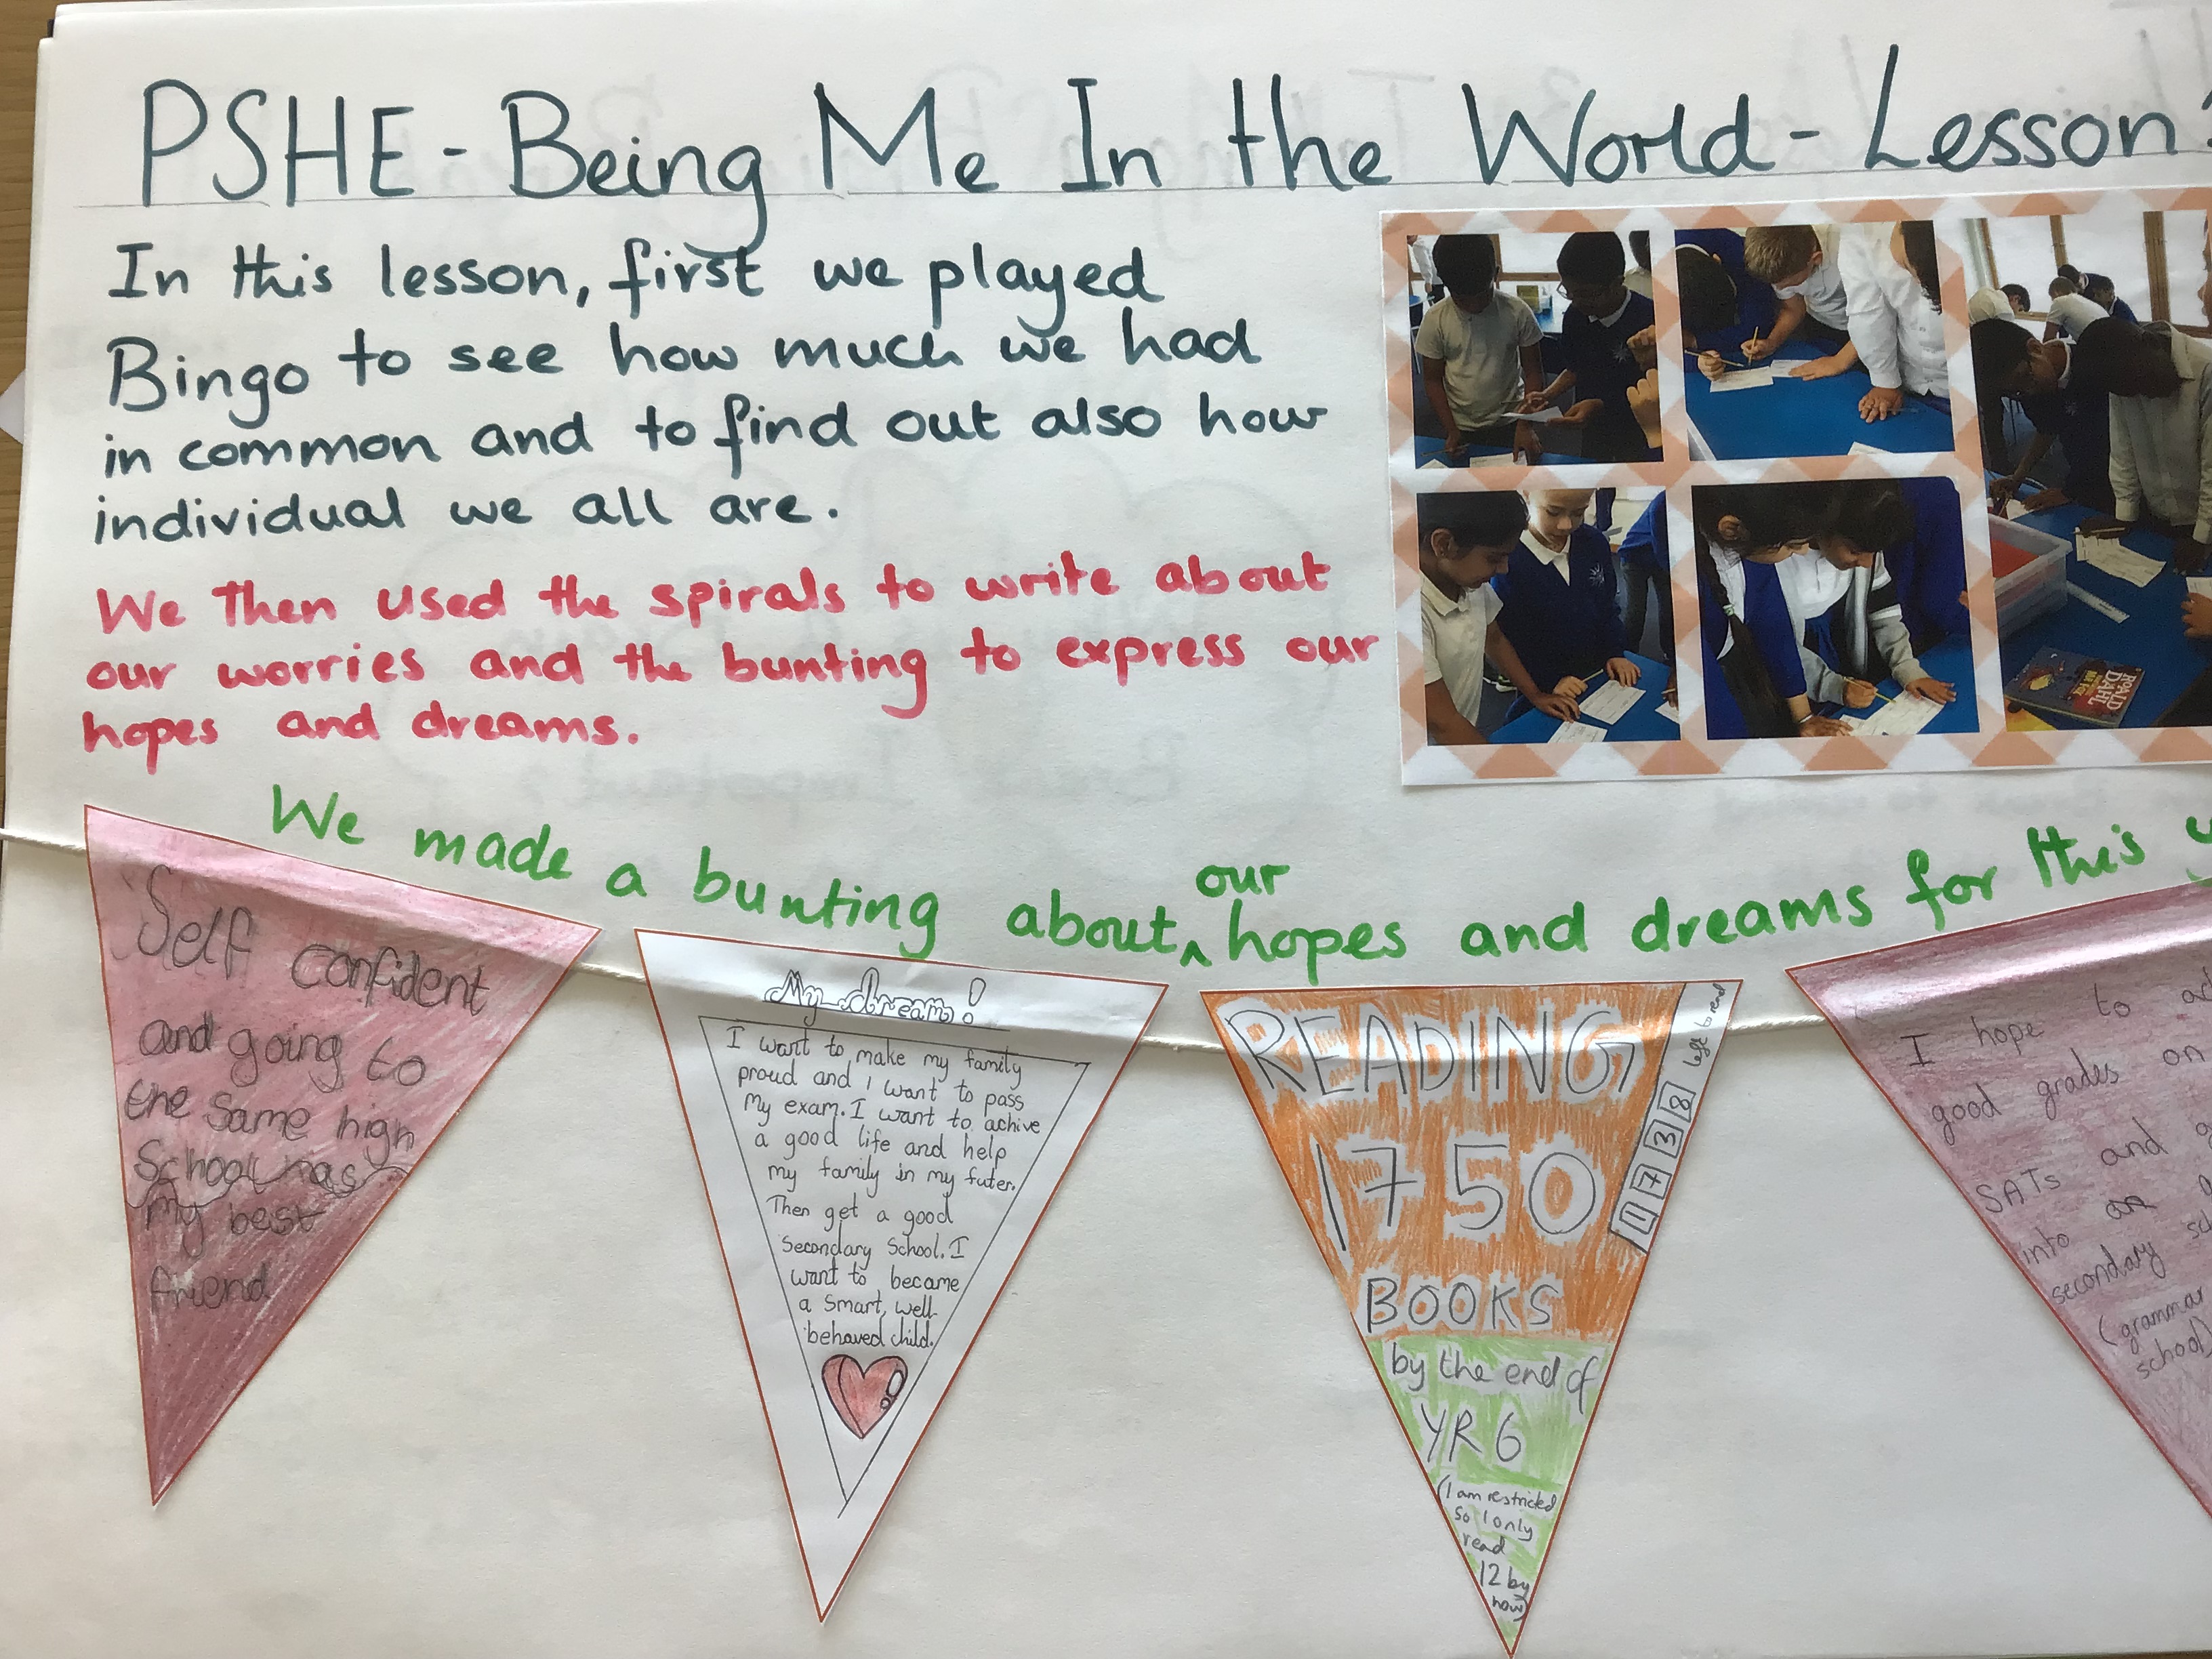 PSHE - Being Me In the World - Lesson
In this lesson, first we played
Bingo to see how much we had
in common and to find out also how
individual we all are.
We then used the spirals to write about
our worries and the bunting to express our
hopes and dreams.
ROALD
DAHL
We made a bunting about ^ our hopes and dreams for this
Self confident
and going to
the same high
School has
my best
friend
My dream!
I want to make my family
proud and I want to pass
My exam. I want to achive
a good life and help
my family in my futer.
Then get a good
Secondary School. I
want to became
a Smart, well-
behaved child.
READING
1750
BOOKS
by the end of
YR 6
(I am restricted
so I only
read
12 by
now)
1738 left to read
I hope to
good grades on
SATs and
into an
secondary
(grammar
school)